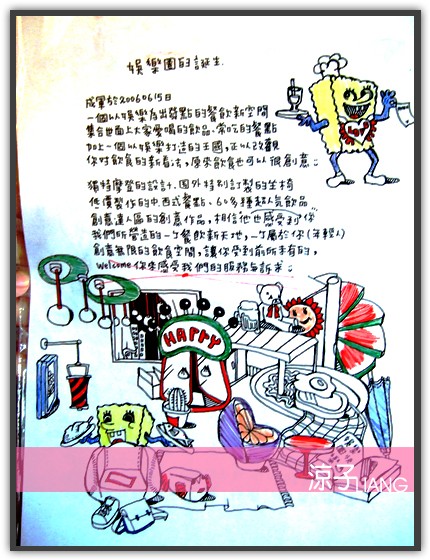 娛樂園的誕生
成軍於20060615日
一個以娛樂為出發點的餐飲新空間
集合世面上大家愛喝的飲品、常吃的餐點
加上一個以娛樂打造的王國,正以改觀
你對飲食的新看法,原來飲食也可以很創意
獨特摩登的設計、國外特別訂製的坐椅
低價製作的中西式餐點、60多種超人氣飲品
創意達人區的創意作品,相信他也感受到你
我們所營造的一ㄘ餐飲新天地,一ㄘ屬於你(年輕人)
創意無限的飲食空間,讓你受到前所未有的,
Welcome你來感受我們的服務與訴求
LOVE
HAPPY
涼子JIANG